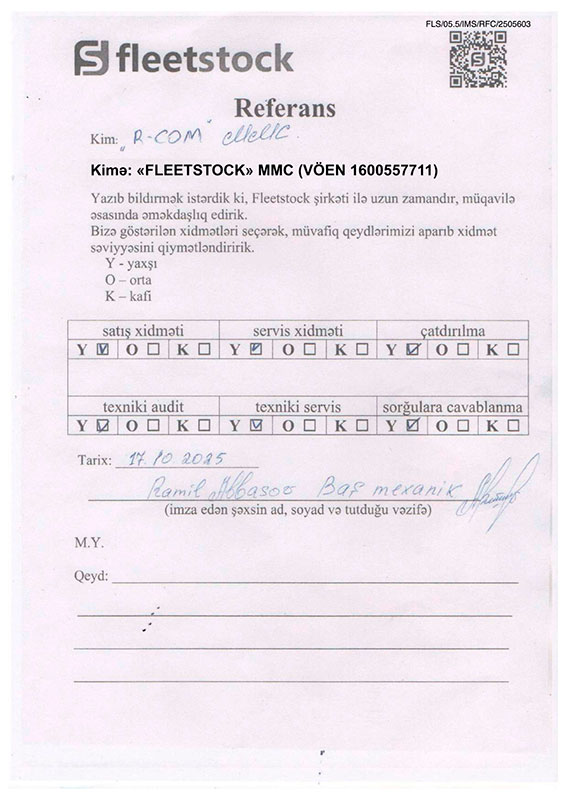 FLS/05.5/IMS/RFC/2505603
fleetstock
Referans
Kim: "R-COM" MMC
Kimə: «FLEETSTOCK» MMC (VÖEN 1600557711)
Yazıb bildirmək istərdik ki, Fleetstock şirkəti ilə uzun zamandır, müqavilə
əsasında əməkdaşlıq edirik.
Bizə göstərilən xidmətləri seçərək, müvafiq qeydlərimizi aparıb xidmət
səviyyəsini qiymətləndiririk.
Y - yaxşı
O – orta
K – kafi
satış xidməti servis xidməti çatdırılma
Y ☑ O ☐ K ☐ Y ☑ O ☐ K ☐ Y ☑ O ☐ K ☐
texniki audit texniki servis sorğulara cavablanma
Y ☑ O ☐ K ☐ Y ☑ O ☐ K ☐ Y ☑ O ☐ K ☐
Tarix: 17.10.2025
Ramil Abbasov Baş mexanik
(imza edən şəxsin ad, soyad və tutduğu vəzifə)
M.Y.
Qeyd: